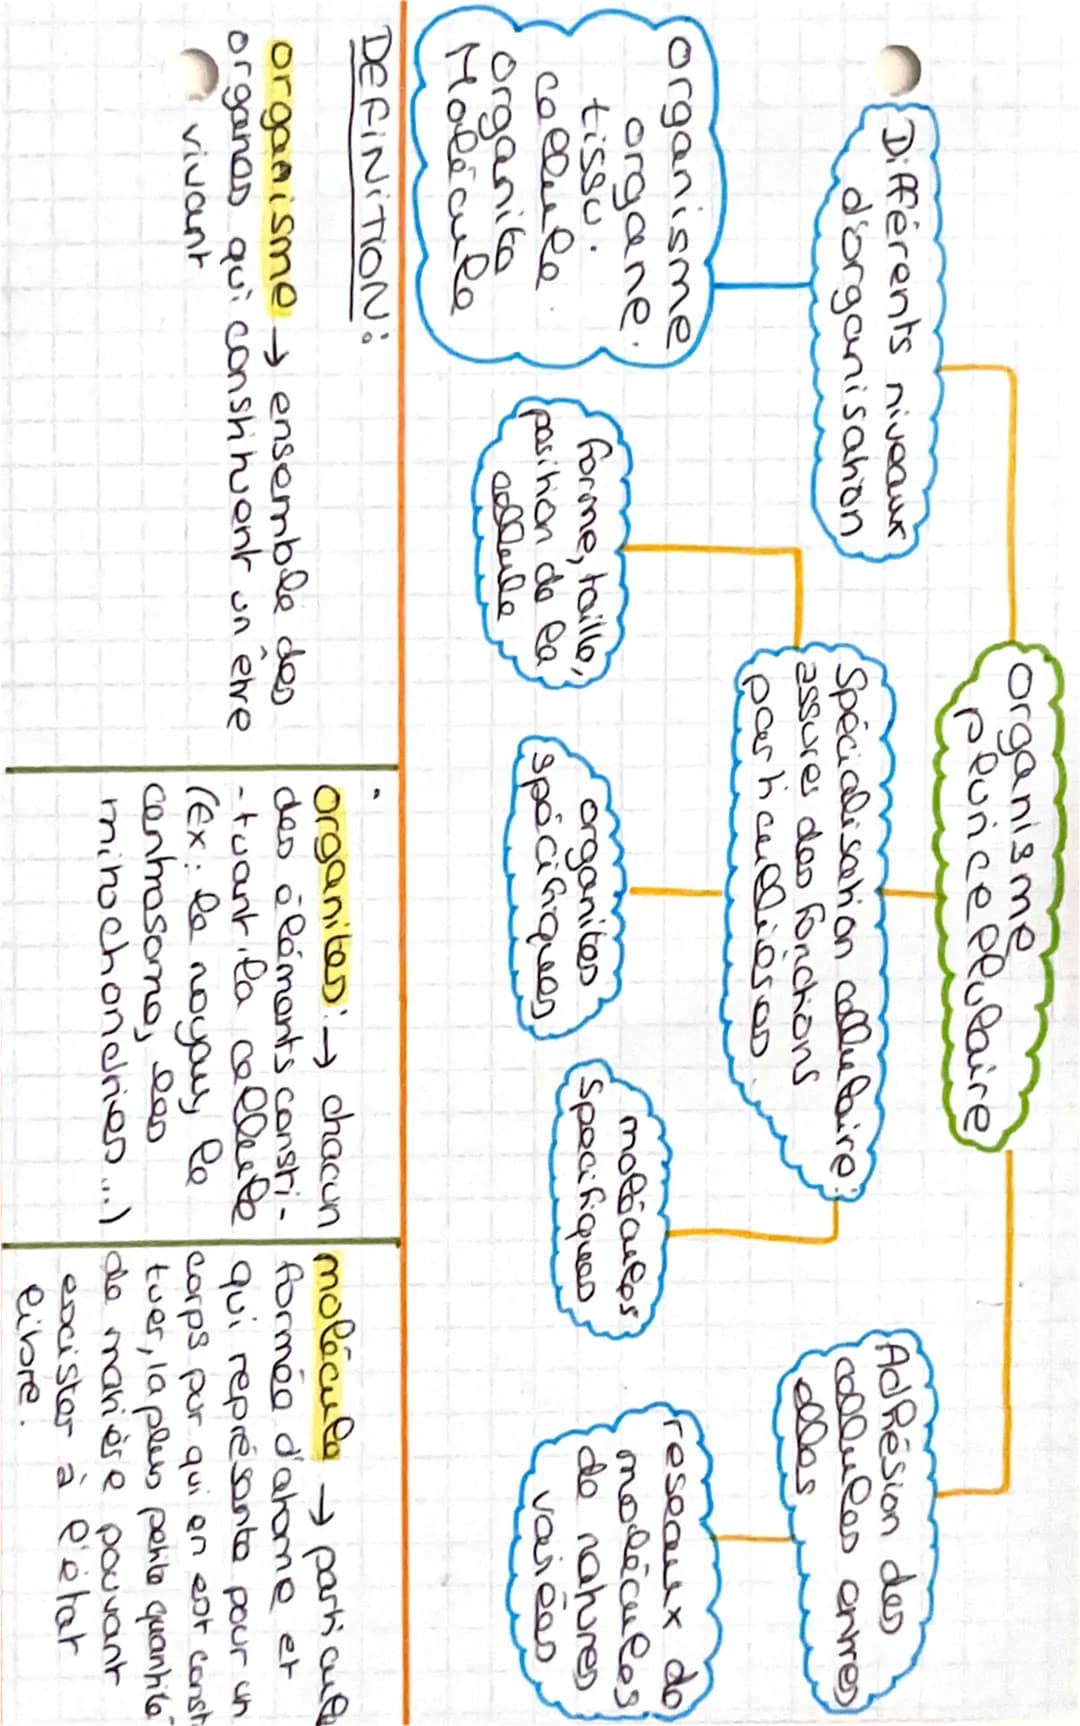 organisme
pluricellulaire
Différents niveaux
d'organisation
organisme
organe.
tissu.
cellule.
organite
Molécule
Spécialisation cellulaire:
assurer des fonctions
particulières
forme, taille,
position de la
cellule
organites
spécifiques
molécules
spécifiques
Adhésion des
cellules entres
elles
reseaux de
molécules
de natures
variées
DEFINITION:
organisme → ensemble des
organes qui constituent un être
vivant
organites: → chacun
des éléments consti-
-tuant la cellule
(Ex: le noyau, le
centrosome, les
mitochondries...)
molécule → particule
formée d'atome et
qui représente pour un
corps pur qui en est const
tuer, la plus petite quantité
de manière pouvant
exister à l'état
libre.